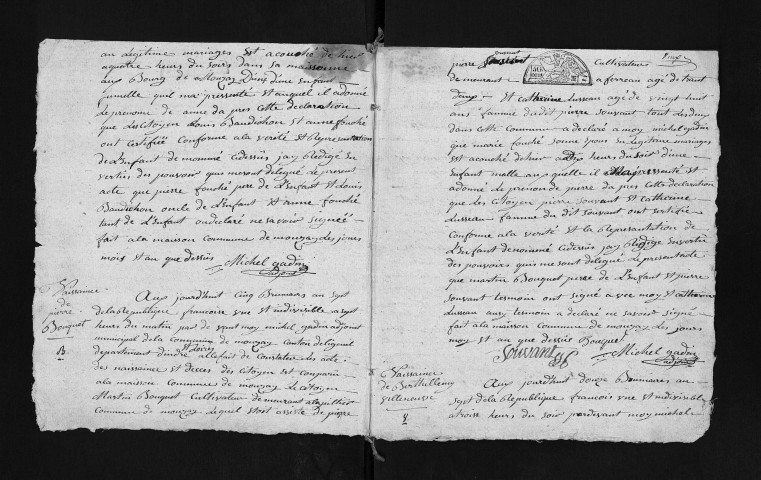 au Legitime mariages Est acouché de hier
a quatre heurs du Soire dans sa maisonne
aux Bourg de Mouzay Dune d'une Enfant
jumelle quel ma presenté Et auquel il adonné
Le prenome de anne da pres Cette declaration
que Les Citoyen Louis Baudichon Et anne fouché
ont Certifiée Conforme a la verité Et Representation
de L'enfant de nommé cidessus jay Redigé En
vertus des pouvoir qui me sont delegué Le present
acte que pierre fouché pere de L'enfant Et Louis
Baudichon oncle de L'enfant Et anne fouché
tant de L'enfant ondeclaré ne savoir signée
fait a la maison Commune de mouzay Les jours
mois Et an que dessus Michel gadin
adjoint
Naissance
de
pierre
Bouquet
B.
Aux jourd'huit Cinq Brumaire an sept
de la Republique francoise une Et indivisible a sept
heuri du matin par de vant moy michel gadin adjoint
municipal de la Commune de mouzay Canton de Ligueil
departement dindre Et Loire allefait de Constater Les acte
des naissance Et deces des Citoyen Est Comparu
a la maison Commune de mouzay Le Citoyen
Martin Bouquet Cultivateur demeurant
Commune de mouzay Lequel Etoit assisté de pierre
pierre Souvant Cultivateur
demeurant a ferreau agé de trant
Deux Et Catherine Lureau agé de vingt huit
ans famme dudit pierre Souvant tout Les deux
dans Cette Commune a déclaré a moy michel gadin
que marie fouché Sonne Epouse en Legitime mariages
Est acouché de hier a dix heurs du soit d'une
Enfant malle au quelle il Ma pressenté Et
adonné Le prenon de pierre da pres Cette declaration
que Les Citoyen pierre Souvant Et Catherine
Lureau famme du dit Souvant ont sertifiée
Conforme a la verité Et la Representation de
L'enfant denommé cidessus jay Redige En vertu
des pouvoirs qui me sont delegué Le present acte
que martin Bouquet perre de L'enfant Et pierre
Souvant temoin ont signé a vec moy Et Catherine
Lureau aussy temoin a declaré ne savoir signé
fait a la maison Commune de mouzay Les jours
moy Et an que dessus Bouquet
Souvant Michel gadin
adjoint
Naissance
de Barthellemy
villeneuve
Aux jourd'huit douze Brumaires an
sept de la Republique francois une Et indivisible
a troise heurs du soir pardevant moy michel